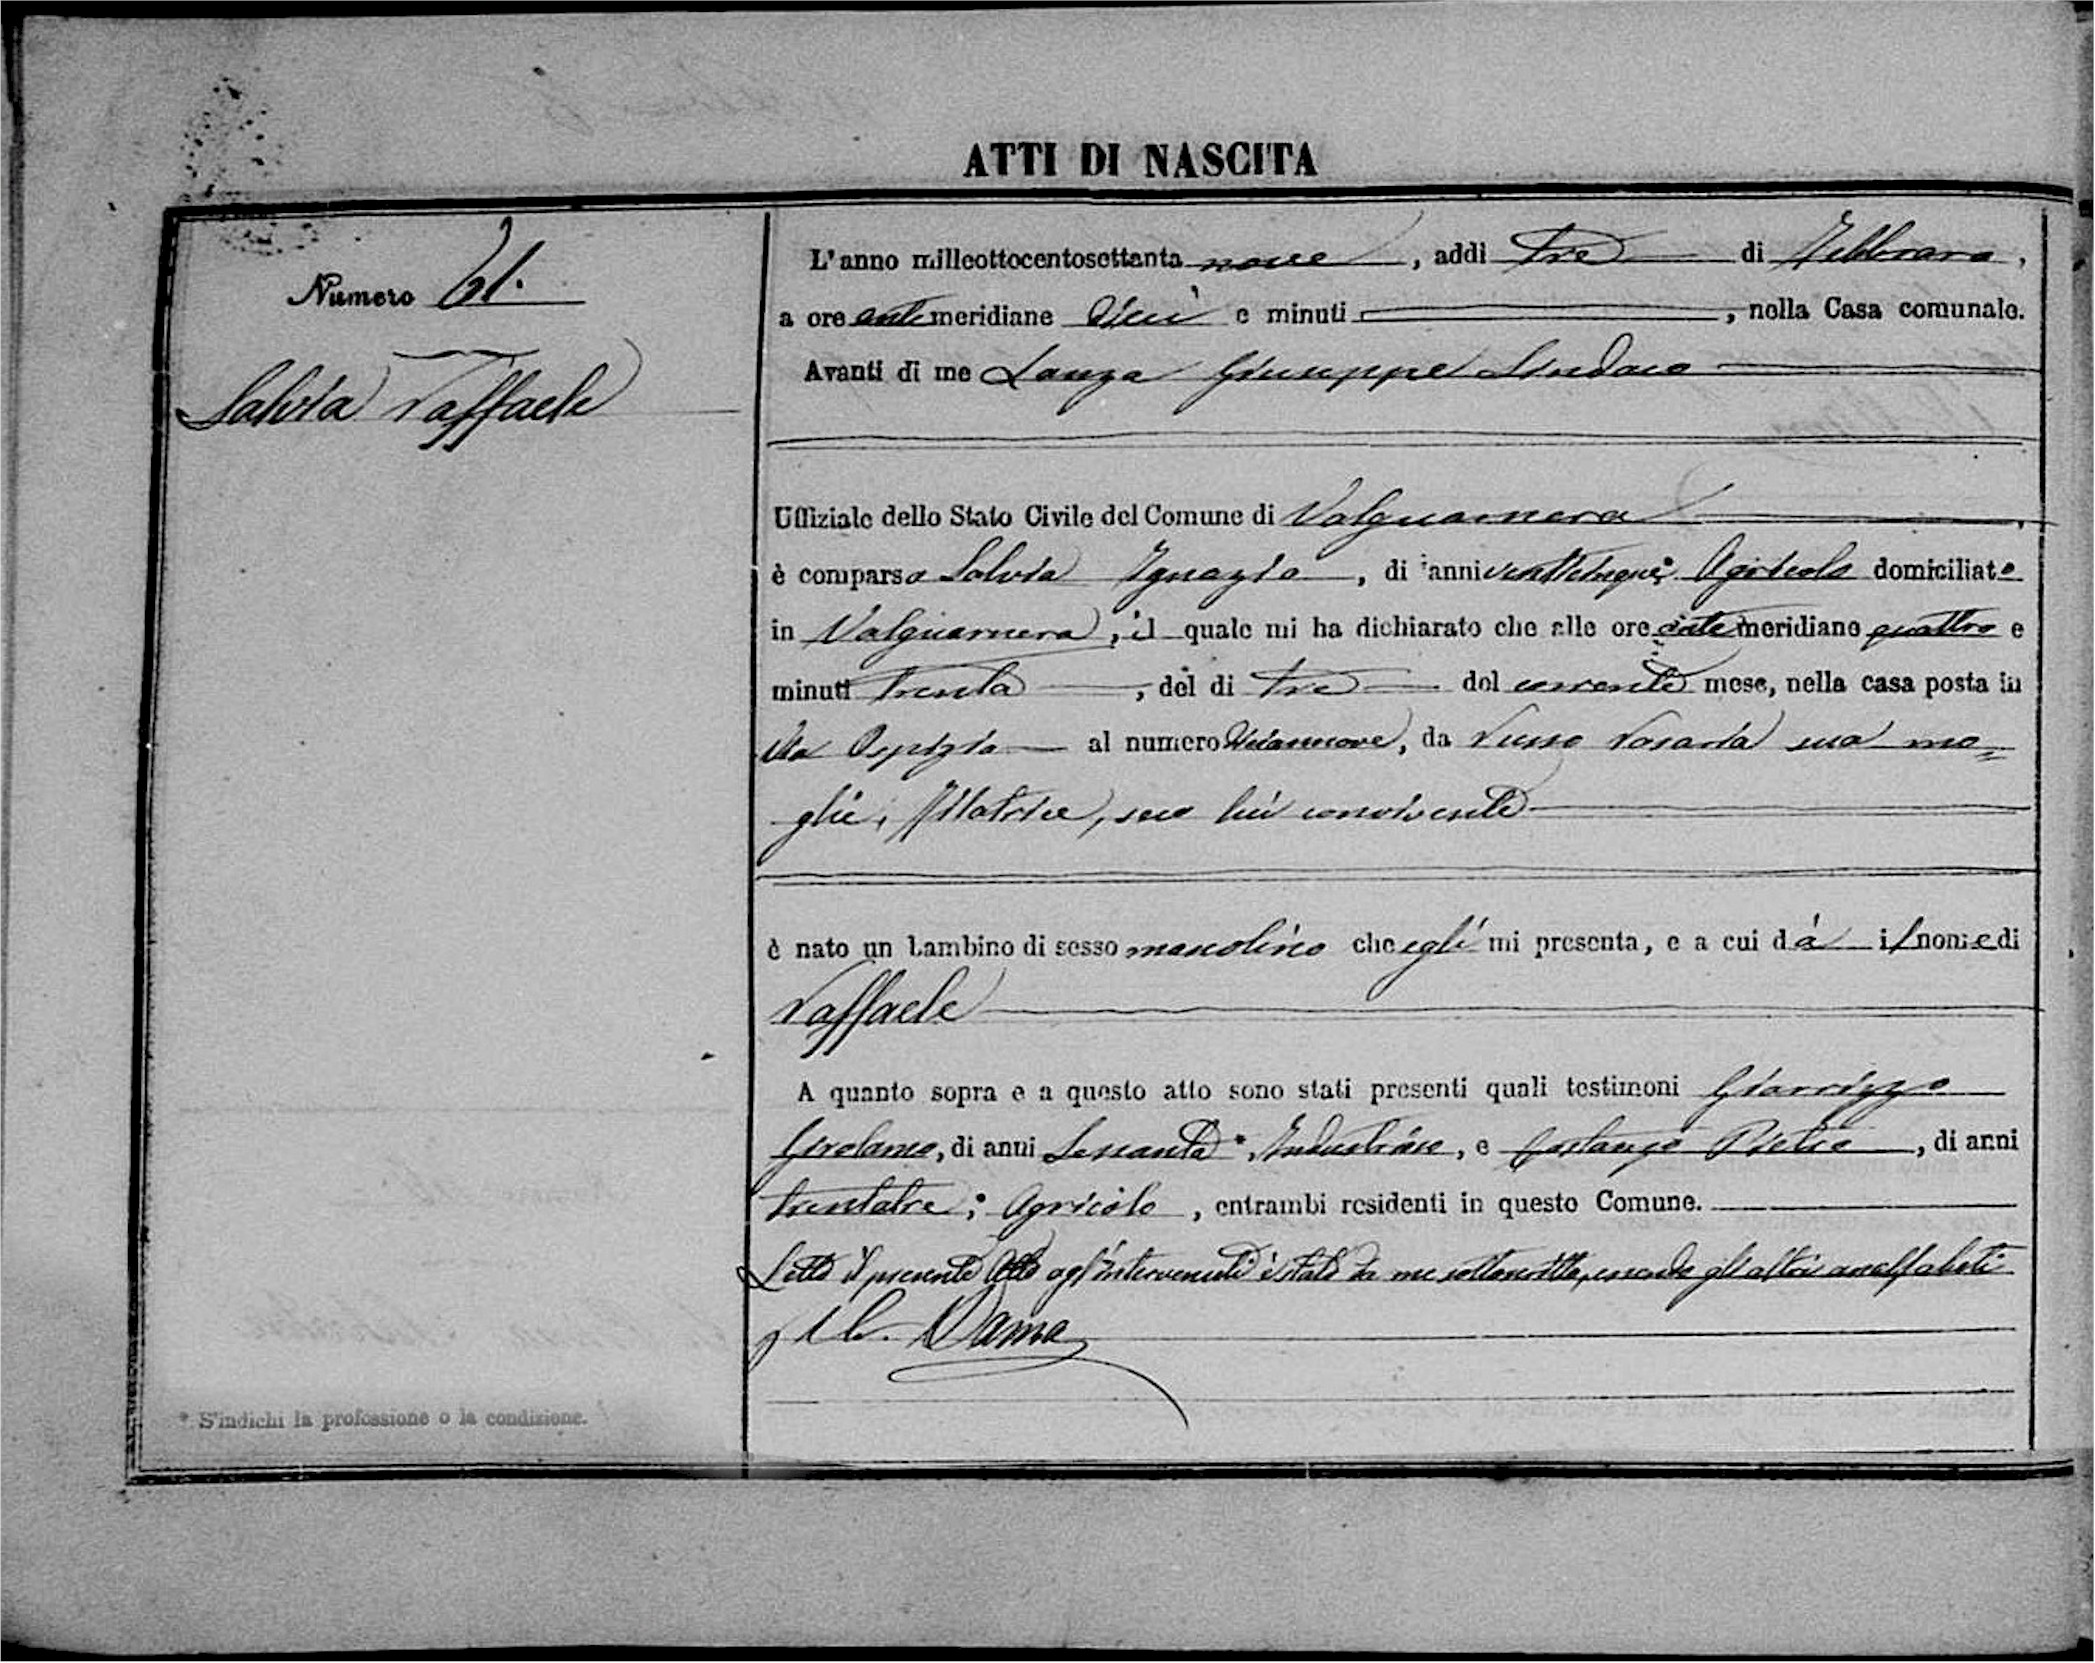 ATTI DI NASCITA
Numero 61.
Salvia Raffaele
L'anno milleottocentosettanta nove, addi tre di Febbraro,
a ore antemeridiane dieci e minuti, nella Casa comunale.
Avanti di me Lanza Giuseppe Sindaco
Uffiziale dello Stato Civile del Comune di Valguarnera
è comparso Salvia Ignazio, di anni venticinque; Agricolo domiciliato
in Valguarnera, il quale mi ha dichiarato che alle ore antemeridiane quattro e
minuti trenta, del di tre del corrente mese, nella casa posta in
Via Ospizio al numero, da Russo Rosaria sua mo=
glie, Filatrice, seco lui convivente
è nato un bambino di sesso mascolino che egli mi presenta, e a cui dà il nome di
Raffaele
A quanto sopra e a questo atto sono stati presenti quali testimoni Giarrizzo
Girolamo, di anni Sessanta *, Industrioso, e Costanzo Pietro, di anni
trentatre; Agricolo, entrambi residenti in questo Comune.
Letto il presente Atto agl'intervenuti è stato da me sottoscritto, essendo gli altri analfabeti
* S'indichi la professione o la condizione.